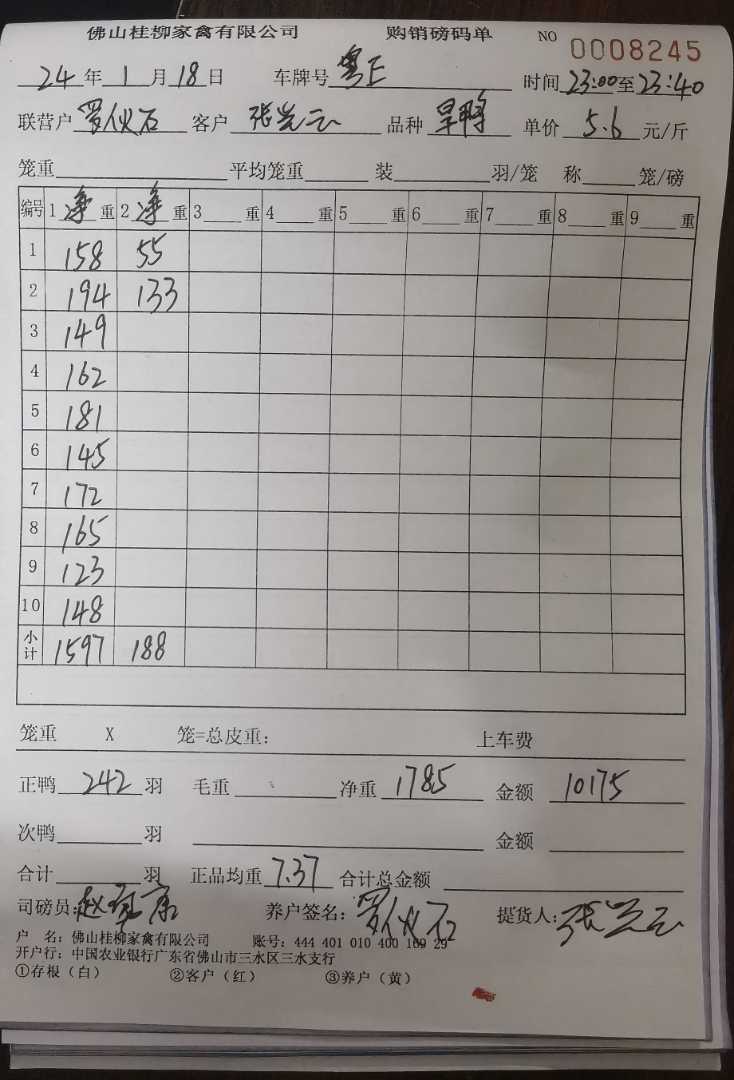 佛山桂柳家禽有限公司 购销磅码单 NO 0008245
24年1月18日 车牌号 粤E 时间23:00至23:40
联营户 罗伙石 客户 张 云 品种 旱鸭 单价 5.6 元/斤
笼重 平均笼重 装 羽/笼 称 笼/磅
编号 1净重 2净重 3 重 4 重 5 重 6 重 7 重 8 重 9 重
1 158 55
2 194 133
3 149
4 162
5 181
6 145
7 172
8 165
9 123
10 148
小计 1597 188
笼重 X 笼=总皮重: 上车费
正鸭 242 羽 毛重 净重 1785 金额 10175
次鸭 羽 金额
合计 羽 正品均重 7.37 合计总金额
司磅员: 赵 康 养户签名: 罗伙石 提货人: 张 云
户 名: 佛山桂柳家禽有限公司 账号: 444 401 010 400 169 29
开户行: 中国农业银行广东省佛山市三水区三水支行
①存根(白) ②客户(红) ③养户(黄)